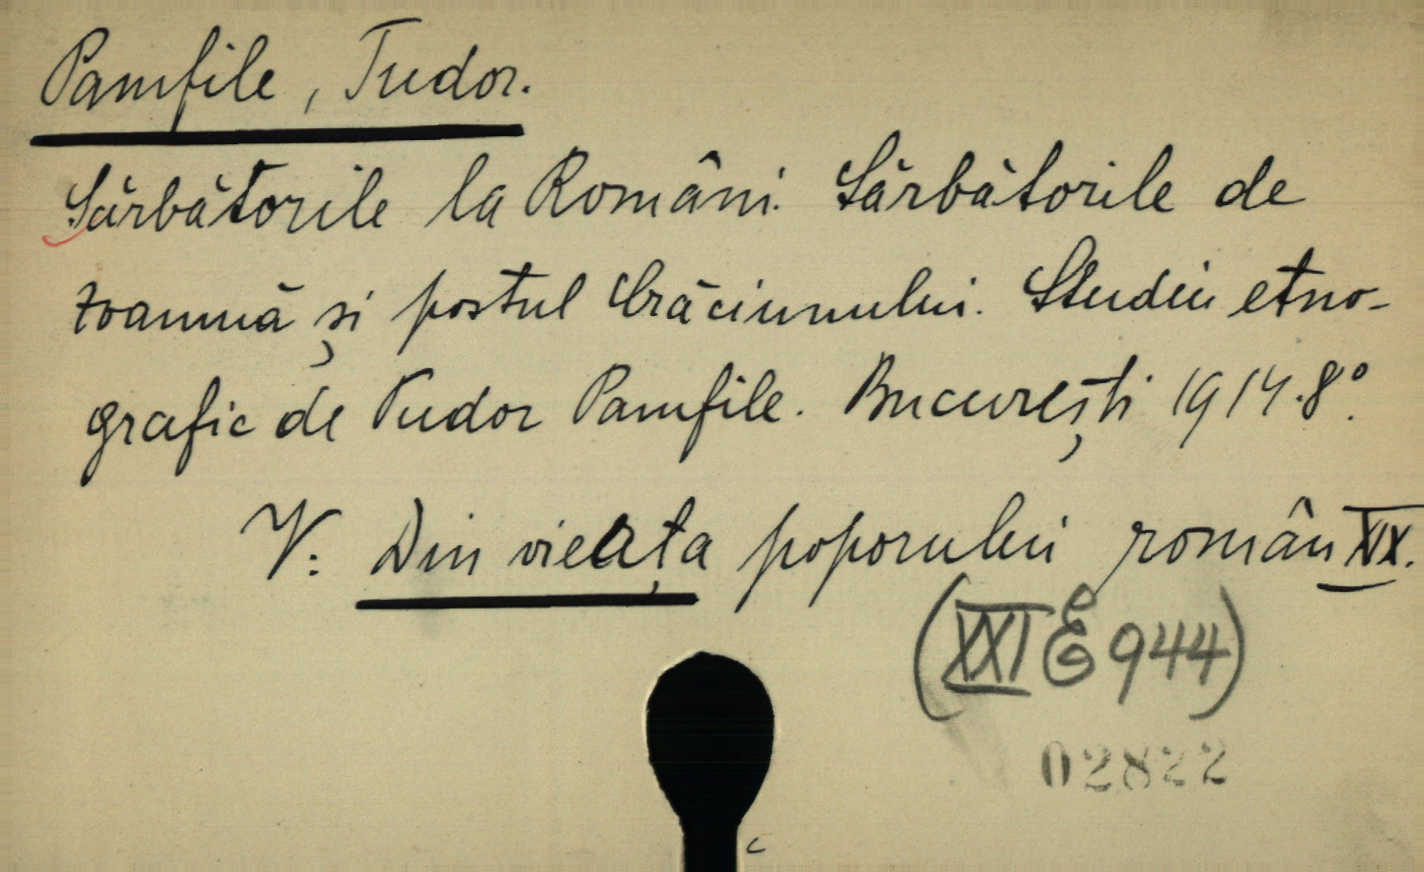 Pamfile, Tudor.
Sărbătorile la Români. Sărbătorile de
toamnă și postul Crăciunului. Studiu etno-
grafic de Tudor Pamfile. București 1914. 8°.
V: Din vieața poporului român XIX.
(XXI E 944)
02822
c